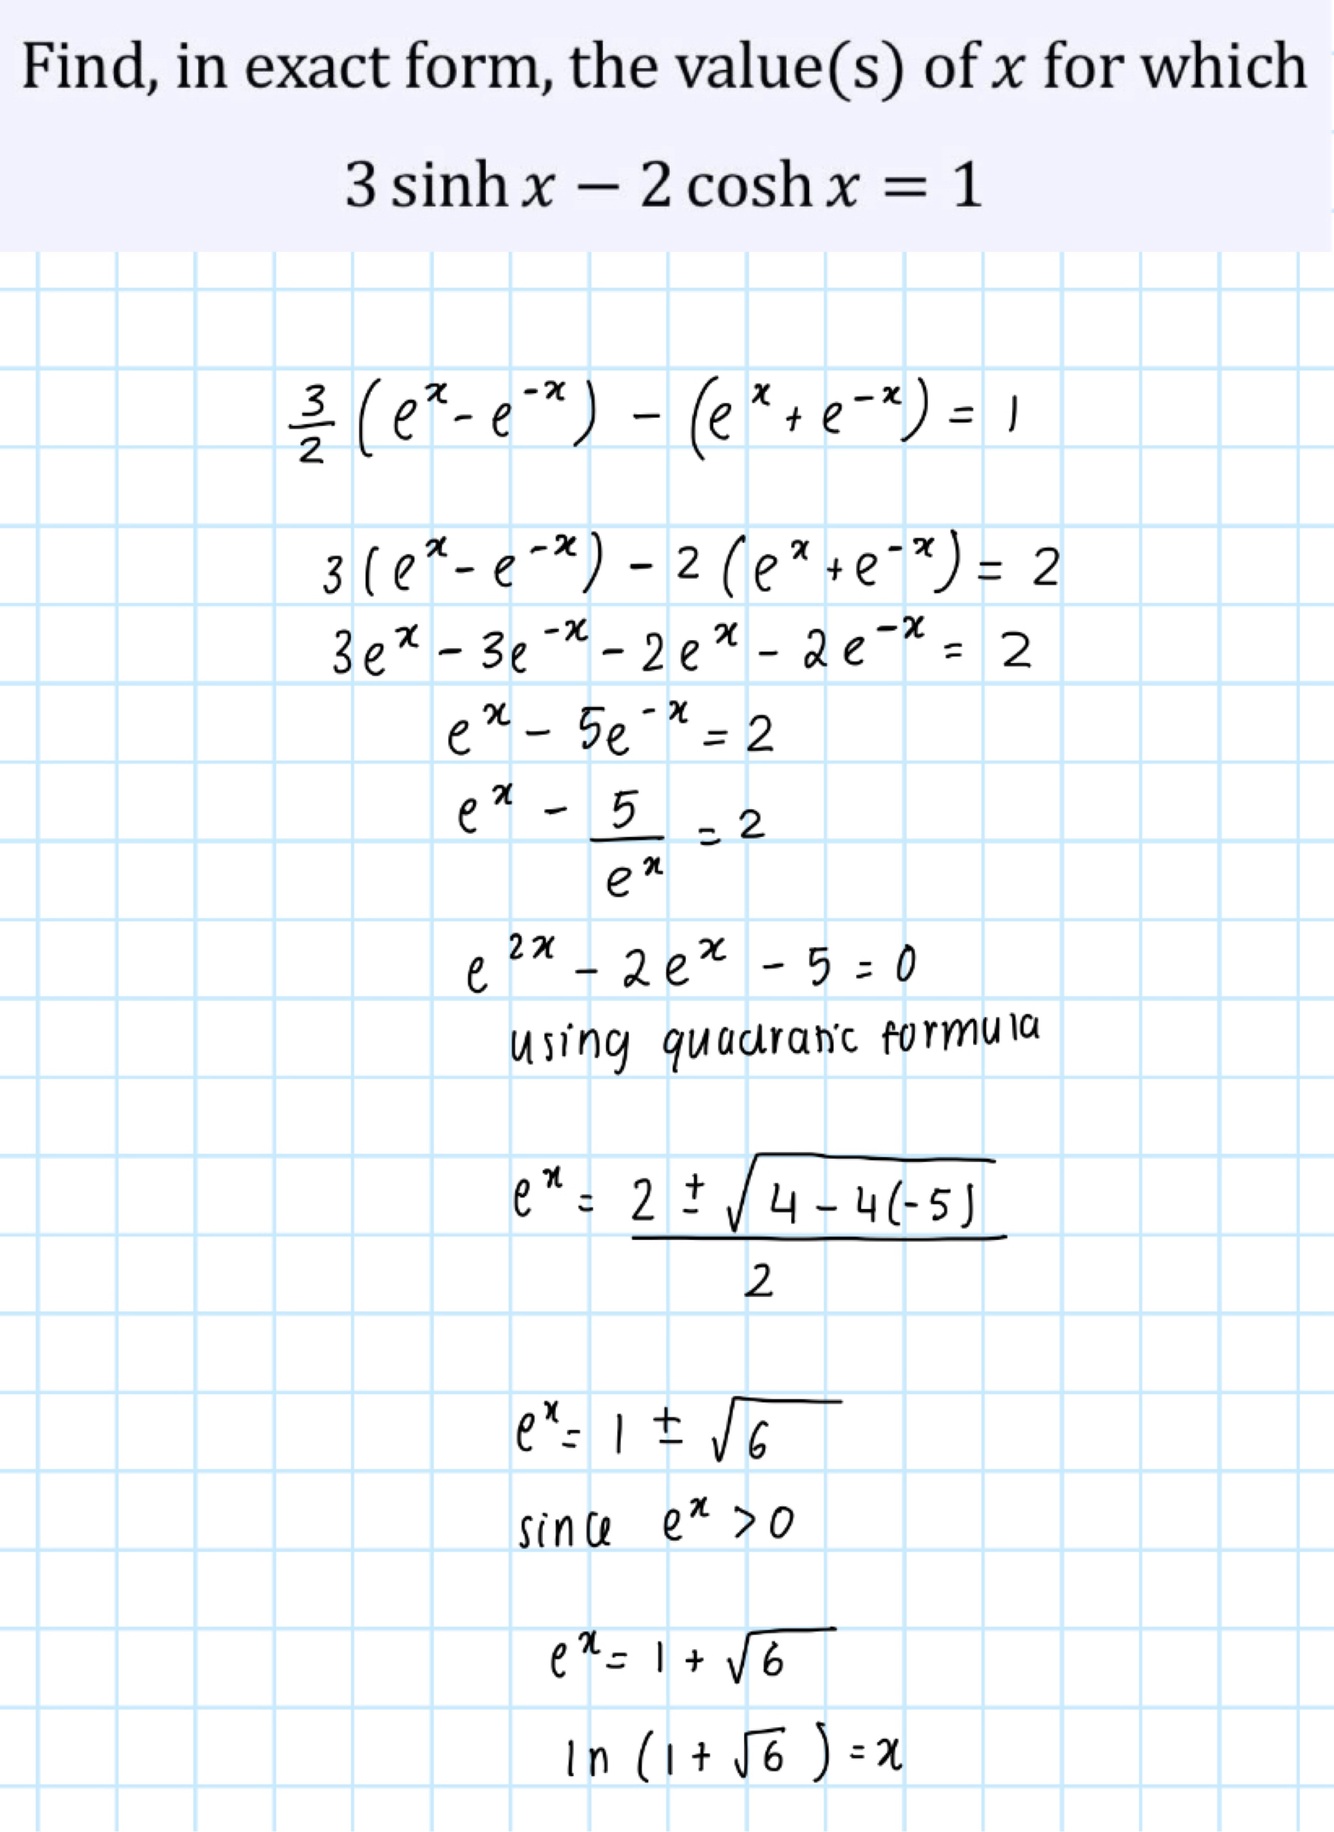 Find, in exact form, the value(s) of x for which
3 sinh x − 2 cosh x = 1
3/2 (e^x - e^-x) - (e^x + e^-x) = 1
3(e^x - e^-x) - 2(e^x + e^-x) = 2
3e^x - 3e^-x - 2e^x - 2e^-x = 2
e^x - 5e^-x = 2
e^x - 5/e^x = 2
e^2x - 2e^x - 5 = 0
using quadratic formula
e^x = (2 ± √(4 - 4(-5)))/2
e^x = 1 ± √6
since e^x > 0
e^x = 1 + √6
ln (1 + √6) = x